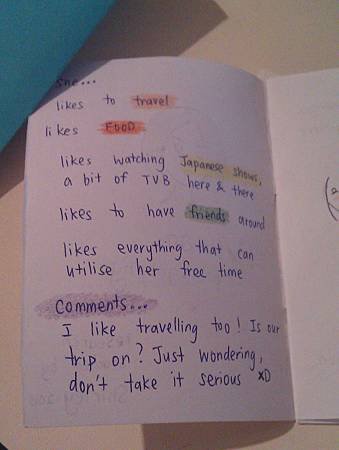 She...
likes to travel
likes FOOD
likes watching Japanese shows,
a bit of TVB here & there
likes to have friends around
likes everything that can
utilise her free time
Comments...
I like travelling too! Is our
trip on? Just wondering,
don't take it serious XD